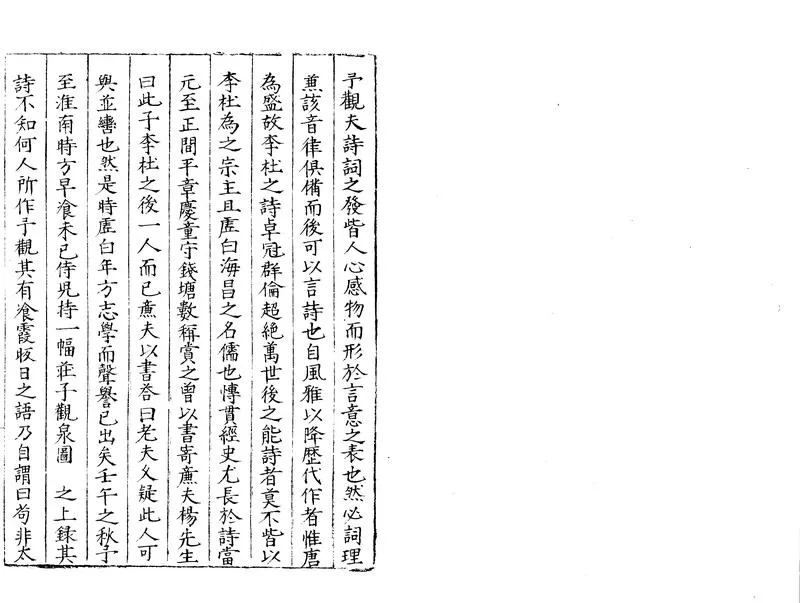 予觀夫詩詞之發皆人心感物而形於言意之表也然必詞理
兼該音律俱備而後可以言詩也自風雅以降歷代作者惟唐
為盛故李杜之詩卓冠群倫超絶萬世後之能詩者莫不皆以
李杜為之宗主且虛白海昌之名儒也慱貫經史尤長於詩當
元至正間平章慶童守錢塘數稱賞之曾以書寄亷夫楊先生
曰此子李杜之後一人而已亷夫以書荅曰老夫乆疑此人可
與並轡也然是時虛白年方志學而聲譽已出矣壬午之秋予
至淮南時方早飡未已侍児持一幅莊子觀泉圖 之上録其
詩不知何人所作予觀其有飡霞㫚日之語乃自謂曰茍非太